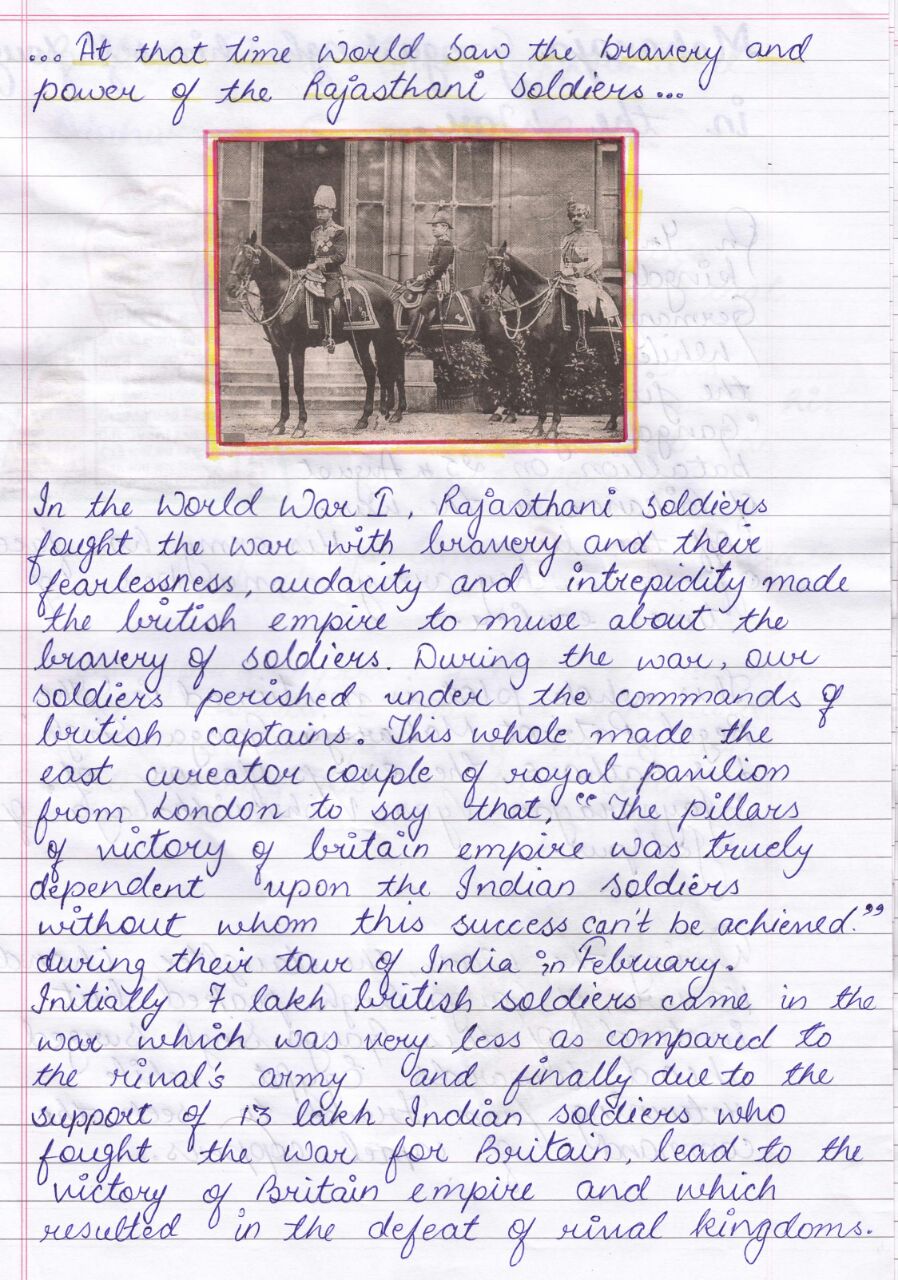 ... At that time world saw the bravery and
power of the Rajasthani soldiers...
In the World War I, Rajasthani soldiers
fought the war with bravery and their
fearlessness, audacity and intrepidity made
the british empire to muse about the
bravery of soldiers. During the war, our
soldiers perished under the commands of
british captains. This whole made the
east cureator couple of royal pavilion
from London to say that, "The pillars
of victory of britain empire was truely
dependent upon the Indian soldiers
without whom this success can't be achieved."
during their tour of India in February.
Initially 7 lakh british soldiers came in the
war which was very less as compared to
the rival's army and finally due to the
support of 13 lakh Indian soldiers who
fought the war for Britain, lead to the
victory of Britain empire and which
resulted in the defeat of rival kingdoms.